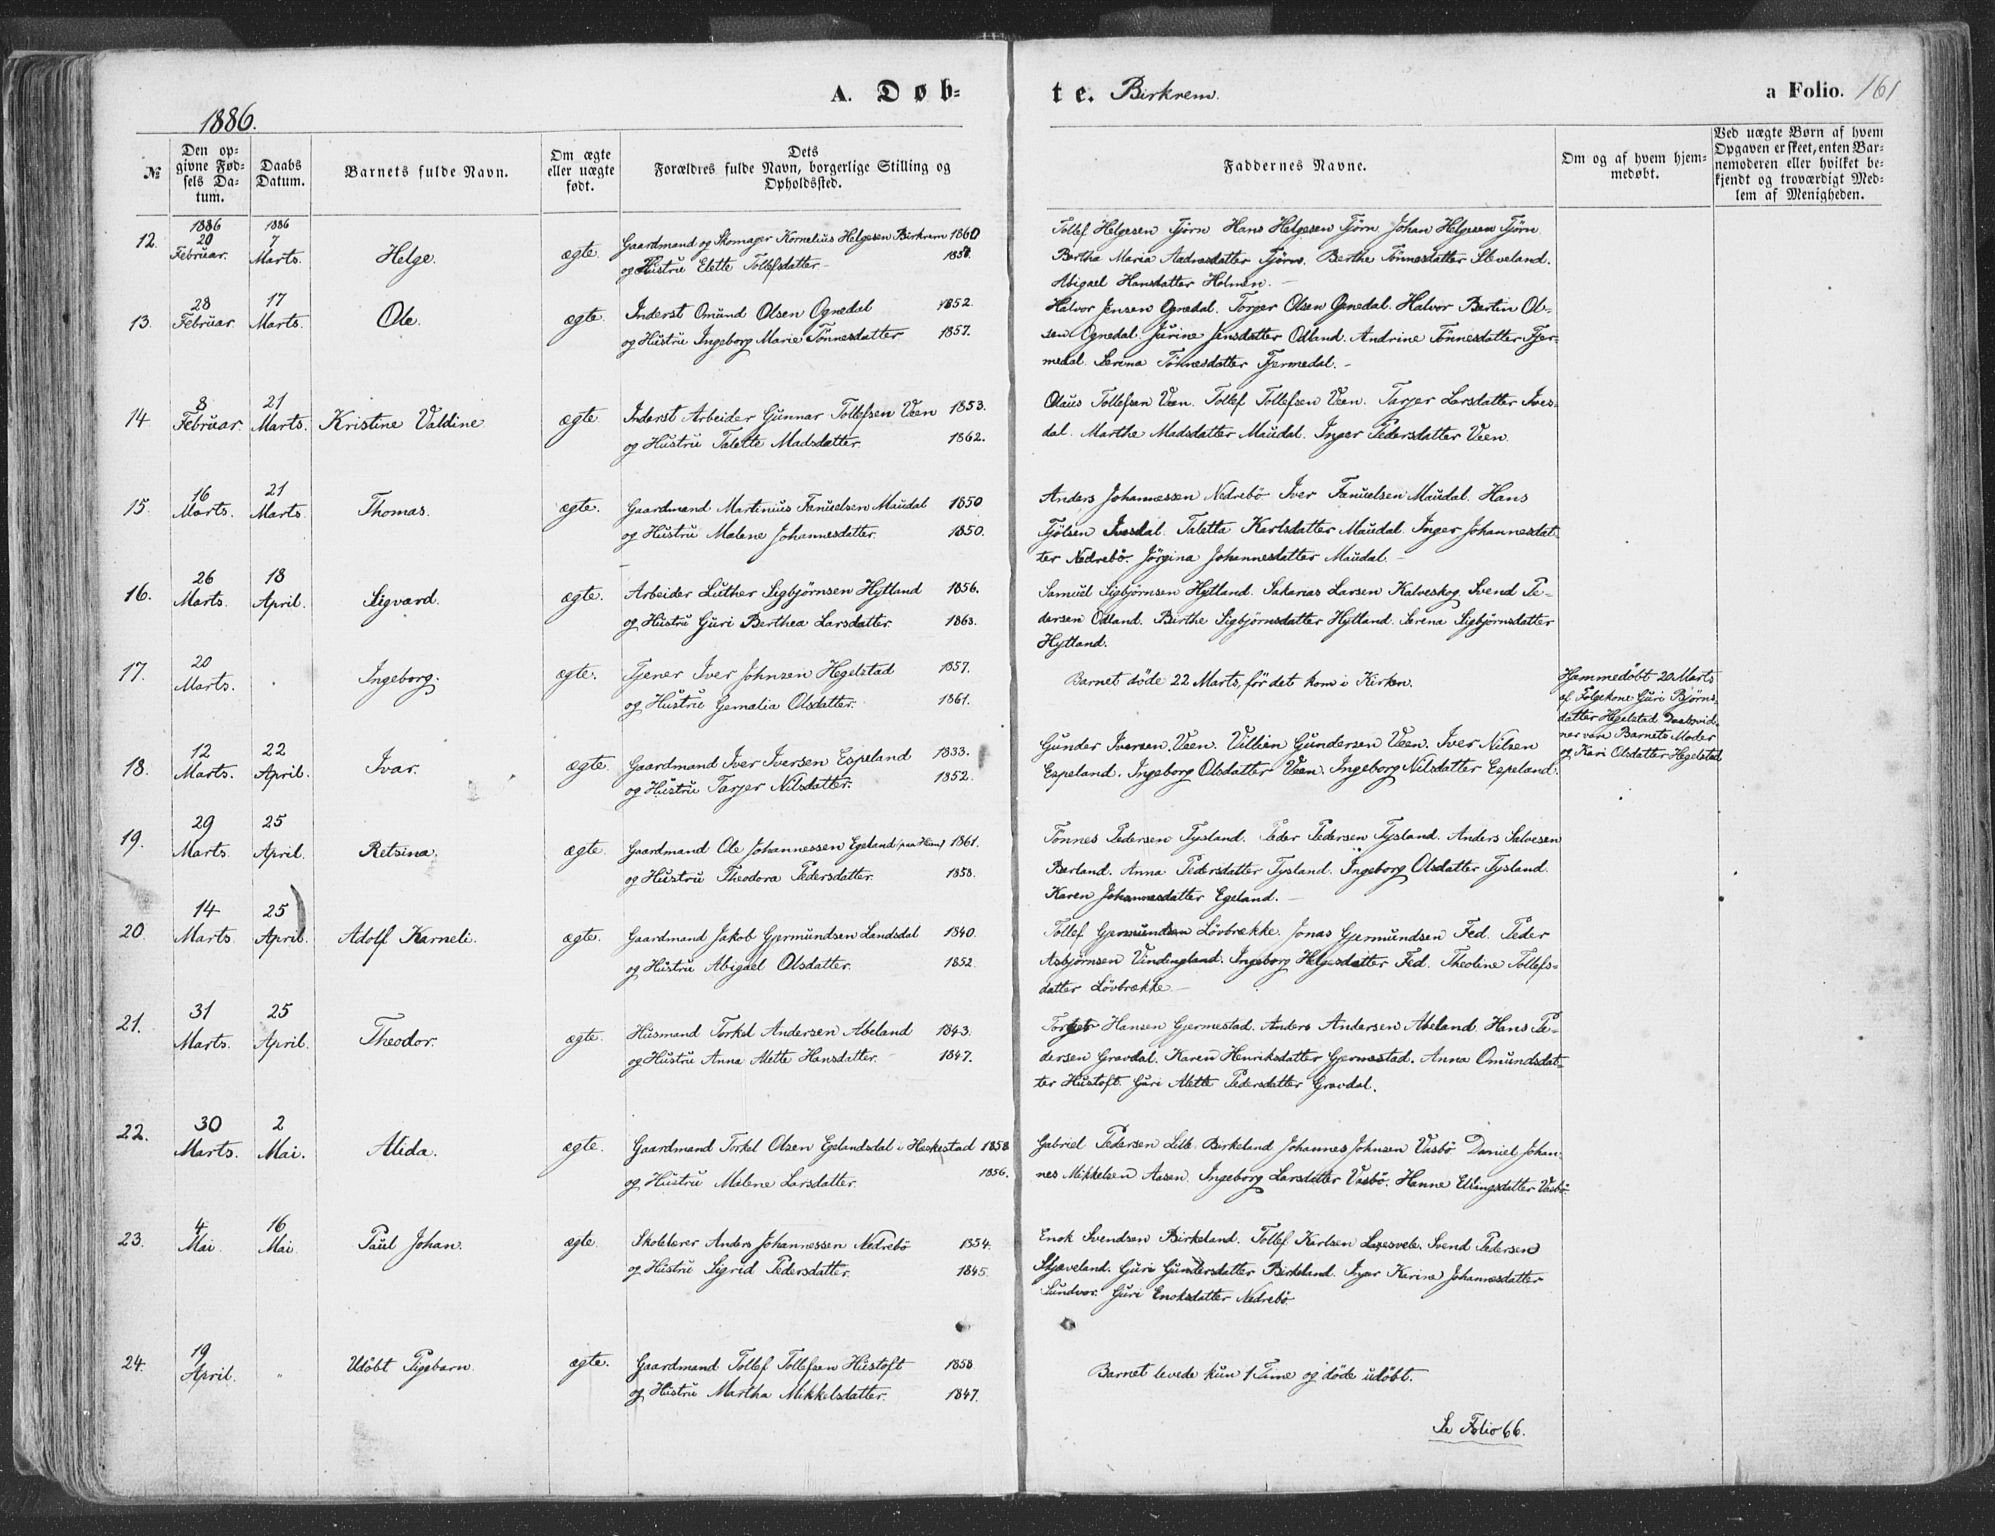 A. Døb-
te. Birkrem.
a Folio. 161
1886.
№
Den op-
givne Fød-
sels Da-
tum.
Daabs
Datum.
Barnets fulde Navn.
Om ægte
eller uægte
født.
Dets
Forældres fulde Navn, borgerlige Stilling og
Opholdssted.
Faddernes Navne.
Om og af hvem hjem-
medøbt.
Ved uægte Børn af hvem
Opgaven er skeet, enten Bar-
nemoderen eller hvilket be-
kjendt og troværdigt Med-
lem af Menigheden.
12. 1886 20 Februar. 1886 7 Marts. Helge. ægte. Gaardmand og Skomager Kornelius Helgesen Birkrem 1860
og Hustru Elette Tollefsdatter
Tollef Helgesen Tjörn Hans Helgesen Tjörn Johan Helgesen Tjörn
Bertha Maria Tjörn. Berthe Tönnesdatter Sleveland.
Abigael Hansdatter Holmen.
13. 28 Februar. 17 Marts. Ole. ægte. Inderst Omund Olsen Ognedal 1852.
og Hustru Ingeborg Marie Tönnesdatter 1857.
Halvor Jensen Ognedal. Torger Olsen Ognedal. Halvor Bertin Ol-
sen Ognedal. Jurine Jensdatter Odland. Andrine Tönnesdatter Tjer-
medal. Serina Tönnesdatter Tjermedal.
14 8 Februar. 21 Marts. Kristine Valdine ægte. Inderst Arbeider Gunnar Tollefsen Veen 1853.
og Hustru Talette Madsdatter. 1862.
Olaus Tollefsen Veen. Tollef Tollefsen Veen. Tarjer Larsdatter Ives-
dal. Marthe Madsdatter Maudal. Inger Pedersdatter Veen.
15. 16 Marts. 21 Marts. Thomas. ægte. Gaardmand Martinius Fanuelsen Maudal 1850
og Hustru Malene Johannesdatter. 1850.
Anders Johannessen Nedrebö Iver Fanuelsen Maudal. Hans
Fjölsen Ivesdal. Taletta Karlsdatter Maudal. Inger Johannesdat-
ter Nedrebö. Jörgina Johannesdatter Maudal.
16. 26 Marts. 18 April. Sigvard. ægte. Arbeider Luther Sigbjörnsen Hytland 1856.
og Hustru Guri Berthea Larsdatter. 1863.
Samuel Sigbjörnsen Hytland. Sakarias Larsen Kalveskog. Svend Pe-
dersen Odland. Birthe Sigbjörnsdatter Hytland. Serena Sigbjörnsdatter
Hytland.
17. 20 Marts. Ingeborg. ægte. Tjener Iver Johnsen Hegelstad 1857.
og Hustru Gemalia Olsdatter. 1861.
Barnet döde 22 Marts, för det kom i Kirken.
Hjemmedöbt 20 Marts
af Fölgekone Guri Björns-
datter Hegelstad Daabsvid-
ner vare Barnets Moder
og Kari Olsdatter Hegelstad
18. 12 Marts. 22 April. Ivar. ægte. Gaardmand Iver Iversen Espeland 1833.
og Hustru Tarjer Nilsdatter. 1852.
Gunder Iversen Veen. Villien Gundersen Veen. Iver Nilsen
Espeland. Ingeborg Olsdatter Veen. Ingeborg Nilsdatter Espeland.
19. 29 Marts. 25 April. Retsina. ægte. Gaardmand Ole Johannessen Egeland 1861.
og Hustru Theodora Pedersdatter. 1858.
Tönnes Pedersen Tysland. Peder Pedersen Tysland. Anders Salvesen
Berland. Anna Pedersdatter Tysland. Ingeborg Olsdatter Tysland.
Karen Johannesdatter Egeland.
20. 14 Marts. 25 April. Adolf Karneli. ægte. Gaardmand Jakob Gjermundsen Landsdal 1840.
og Hustru Abigael Olsdatter. 1852.
Tollef Gjermundsen Lövbrække. Jonas Gjermundsen Fed. Peder
Asbjörnsen Vindingland. Ingeborg Helgesdatter Fed. Theoline Tollefs-
datter Lövbrække.
21. 31 Marts. 25 April. Theodor. ægte. Husmand Torkel Andersen Abeland 1843.
og Hustru Anna Alette Hansdatter. 1847.
Hansen Gjermestad. Anders Andersen Abeland. Hans Pe-
dersen Gravdal. Karen Henriksdatter Gjermestad. Anna Omundsdat-
ter Hustoft. Guri Alette Pedersdatter Gravdal.
22. 30 Marts. 2 Mai. Alida. ægte. Gaardmand Torkel Olsen Egelandsdal i Heskestad 1858
og Hustru Malene Larsdatter. 1856.
Gabriel Pedersen Lille Birkeland Johannes Johnsen Vasbö Daniel Johan-
nes Mikkelsen Aasen. Ingeborg Larsdatter Vasbö. Hanne Ellingsdatter Vasbö.
23. 4 Mai. 16 Mai. Paul Johan. ægte. Skolelærer Anders Johannessen Nedrebö 1854.
og Hustru Sigrid Pedersdatter. 1845.
Enok Svendsen Birkeland. Tollef Karlsen Laxesvele. Svend Pedersen
Skjæveland. Guri Gundersdatter Birkeland. Inger Karine Johannesdatter
Sundvor. Guri Enoksdatter Nedrebö.
24. 19 April. " Udöbt Pigebarn. ægte. Gaardmand Tollef Tollefsen Hustoft 1858
og Hustru Martha Mikkelsdatter. 1847.
Barnet levede kun 1 Time og döde udöbt.
Se Folio 66.